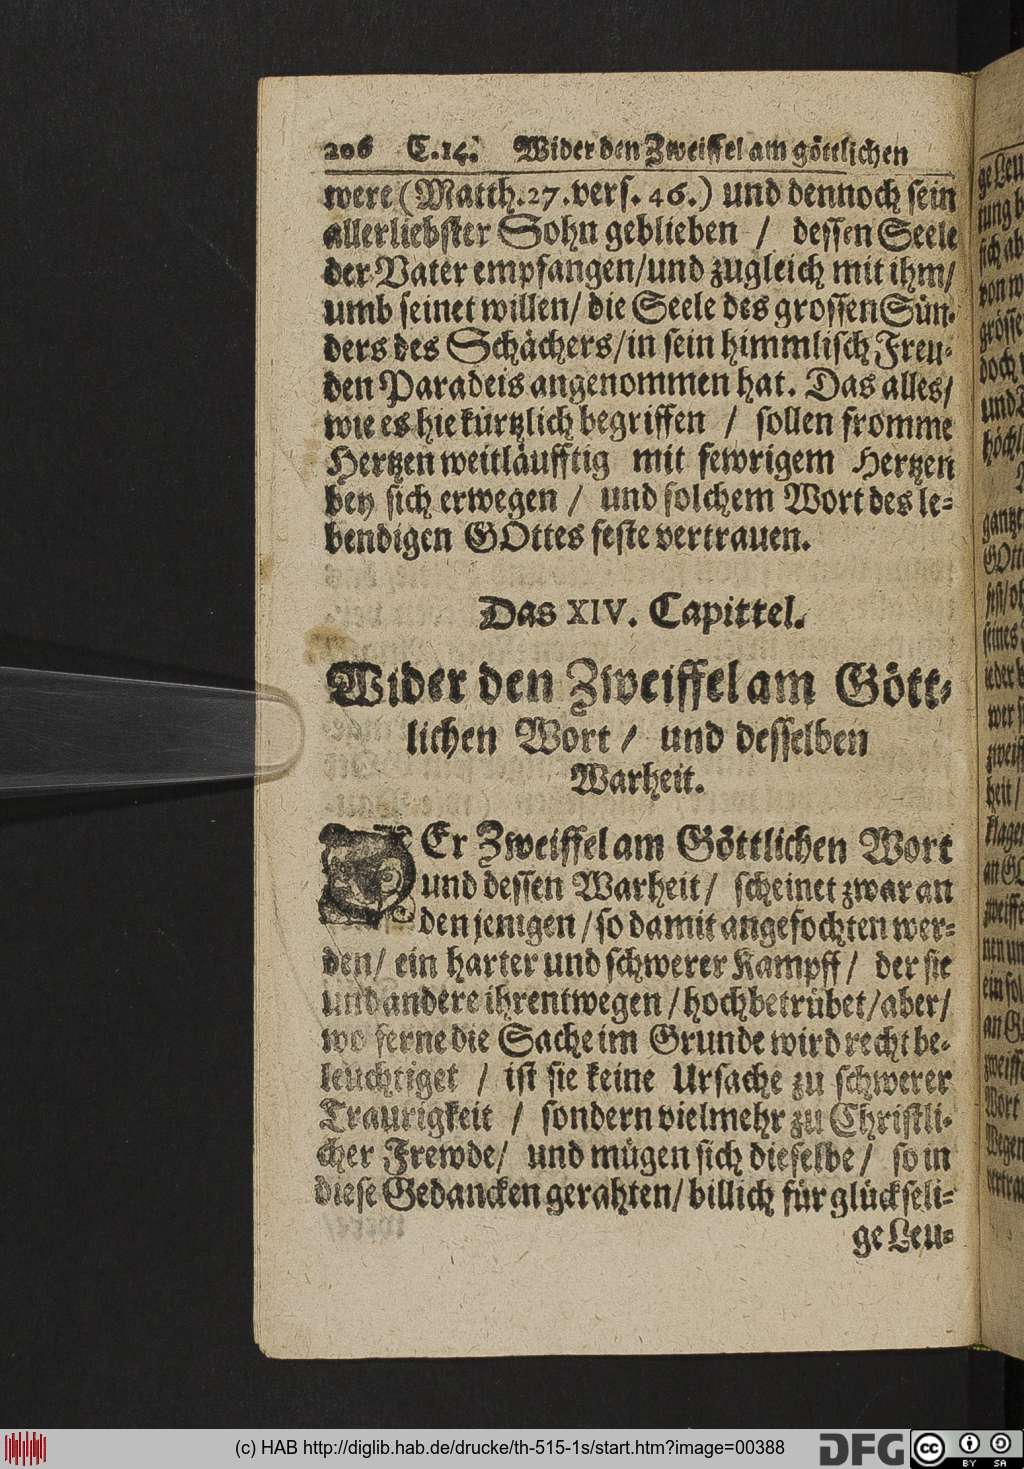 206 C.14. Wider den Zweiffel am göttlichen
were (Matth.27.vers. 46.) und dennoch sein
allerliebster Sohn geblieben / dessen Seele
der Vater empfangen/und zugleich mit ihm/
umb seinet willen/ die Seele des grossen Sün-
ders des Schächers/in sein himmlisch Freu-
den Paradeis angenommen hat. Das alles/
wie es hie kürtzlich begriffen / sollen fromme
Hertzen weitläufftig mit fewrigem Hertzen
bey sich erwegen / und solchem Wort des le-
bendigen GOttes feste vertrauen.
Das XIV. Capittel.
Wider den Zweiffel am Gött-
lichen Wort / und desselben
Warheit.
DEr Zweiffel am Göttlichen Wort
und dessen Warheit / scheinet zwar an
den jenigen /so damit angefochten wer-
den/ ein harter und schwerer Kampff / der sie
und andere ihrentwegen /hochbetrübet/aber/
wo ferne die Sache im Grunde wird recht be-
leuchtiget / ist sie keine Ursache zu schwerer
Traurigkeit / sondern vielmehr zu Christli-
cher Frewde/ und mügen sich dieselbe / so in
diese Gedancken gerahten/ billich für glückseli-
ge Leu-
(c) HAB http://diglib.hab.de/drucke/th-515-1s/start.htm?image=00388
DFG
cc BY SA